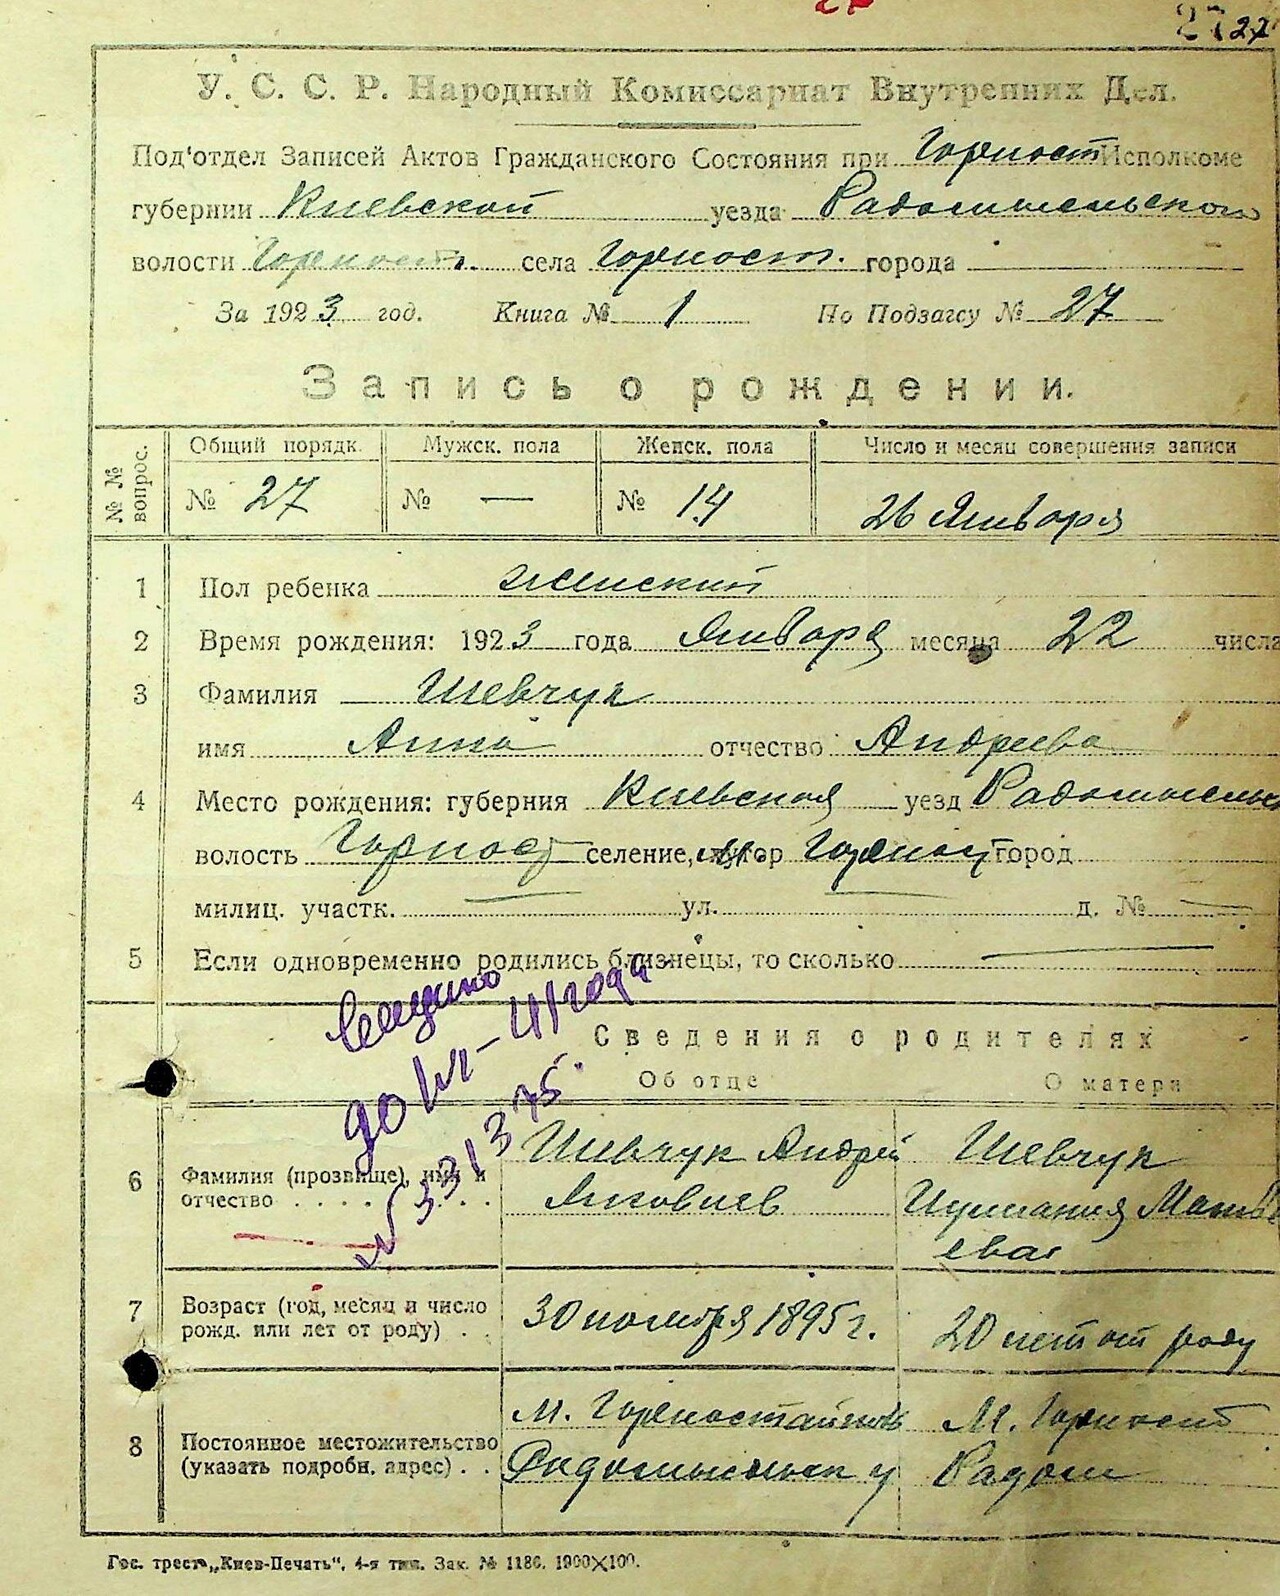 27 27
У. С. С. Р. Народный Комиссариат Внутренних Дел.
Под'отдел Записей Актов Гражданского Состояния при Горност Исполкоме
губернии Киевской уезда Радомысльского
волости Горност. села Горност. города
За 1923 год. Книга № 1 По Подзагсу № 27
Запись о рождении.
№ № вопрос. Общий порядк. Мужск. пола Женск. пола Число и месяц совершения записи
№ 27 № — № 14 26 Января
1 Пол ребенка женский
2 Время рождения: 1923 года Января месяца 22 числа
3 Фамилия Шевчук
имя Анна отчество Андреева
4 Место рождения: губерния Киевская уезд Радомысльск
волость Горност селение, хутор м. Горност город
милиц. участк. — ул. — д. № —
5 Если одновременно родились близнецы, то сколько —
Сведения о родителях
Об отце О матери
6 Фамилия (прозвище), имя и
отчество . . . .
Шевчук Андрей
Яковлев
Шевчук
Матв
ева
7 Возраст (год, месяц и число
рожд. или лет от роду) . .
30 ноября 1895 г.
20 лет от роду
8 Постоянное местожительство
(указать подробн. адрес) . .
м. Горностайполь
Радомысльск у
М. Горност
Радом
№ 331375.
Гос. трест „Киев-Печать“. 4-я тип. Зак. № 1186. 1000×100.